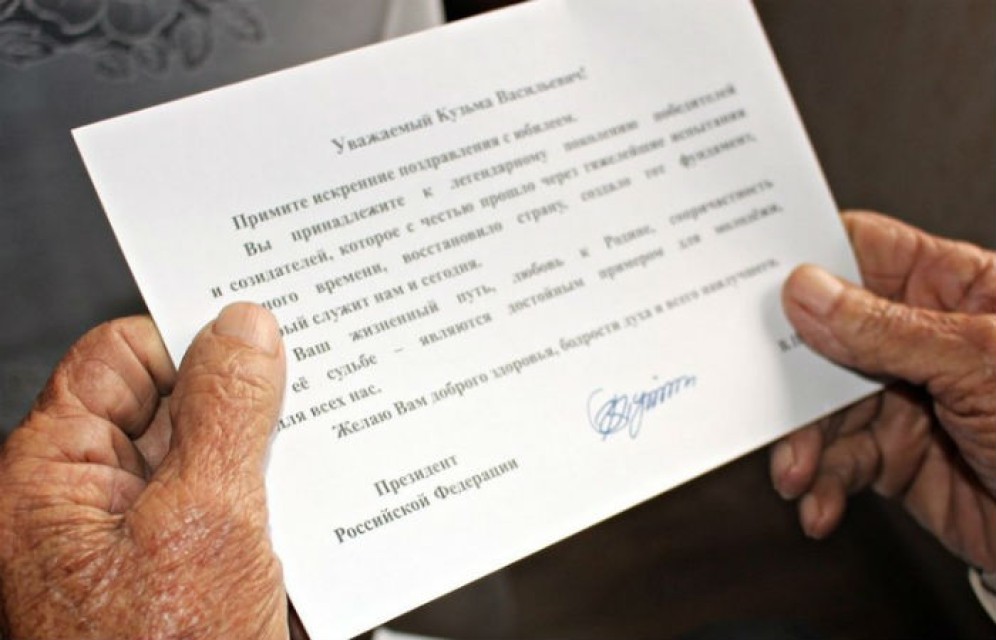 Уважаемый Кузьма Васильевич!
Примите искренние поздравления с юбилеем.
Вы принадлежите к легендарному поколению победителей
и созидателей, которое с честью прошло через тяжелейшие испытания
ного времени, восстановило страну, создало тот фундамент,
рый служит нам и сегодня.
Ваш жизненный путь, любовь к Родине, сопричастность
её судьбе – являются достойным примером для молодёжи,
для всех нас.
Желаю Вам доброго здоровья, бодрости духа и всего наилучшего.
Президент
Российской Федерации